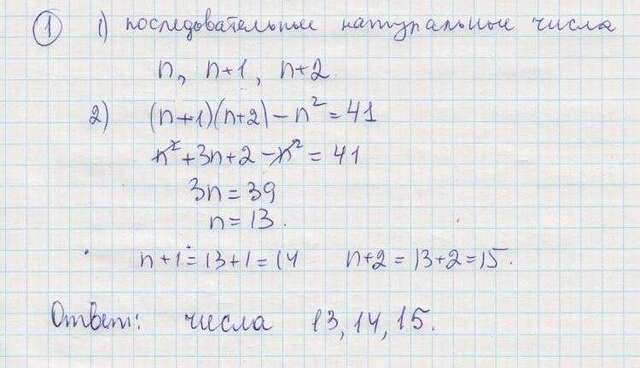 ① 1) последовательные натуральные числа
n, n+1, n+2.
2) (n+1)(n+2) - n² = 41
n² + 3n + 2 - n² = 41
3n = 39
n = 13.
n+1 = 13+1 = 14 n+2 = 13+2 = 15.
Ответ: числа 13, 14, 15.